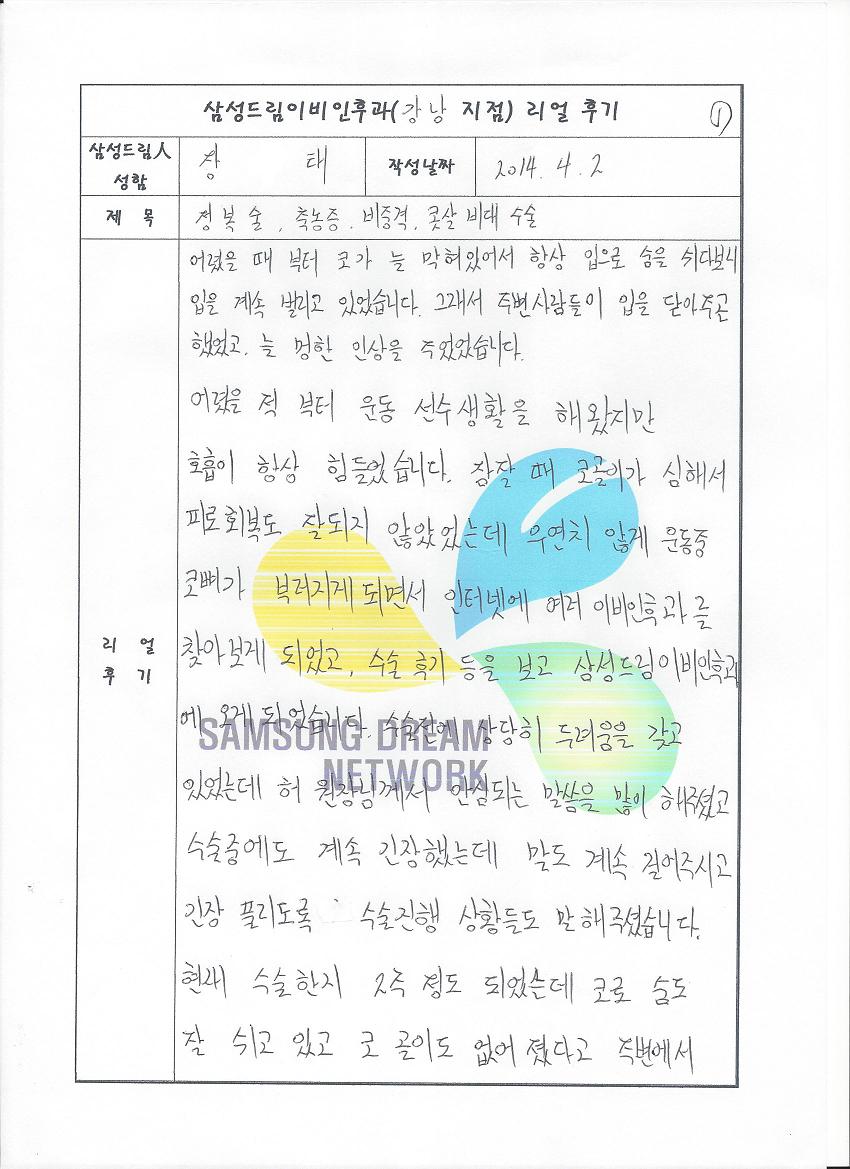 삼성드림이비인후과(강남 지점) 리얼 후기 ①
삼성드림人 성함 장 태 작성날짜 2014. 4. 2
제 목 정복술, 축농증, 비중격, 콧살 비대 수술
어렸을 때 부터 코가 늘 막혀있어서 항상 입으로 숨을 쉬다보니
입을 계속 벌리고 있었습니다. 그래서 주변사람들이 입을 닫아주곤
했었고, 늘 멍한 인상을 주었었습니다.
어렸을 적 부터 운동 선수생활을 해왔지만
호흡이 항상 힘들었습니다. 잠잘 때 코골이가 심해서
피로회복도 잘되지 않았었는데 우연치 않게 운동중
코뼈가 부러지게 되면서 인터넷에 여러 이비인후과를
리 얼 후 기
찾아보게 되었고, 수술 후기 등을 보고 삼성드림이비인후과
에 오게 되었습니다. 수술전에 상당히 두려움을 갖고
SAMSUNG DREAM
NETWORK
있었는데 허 원장님께서 안심되는 말씀을 많이 해주셨고
수술중에도 계속 긴장했는데 말도 계속 걸어주시고
긴장 풀리도록 수술진행 상황들도 말해주셨습니다.
현재 수술한지 2주 정도 되었는데 코로 숨도
잘 쉬고 있고 코 골이도 없어 졌다고 주변에서